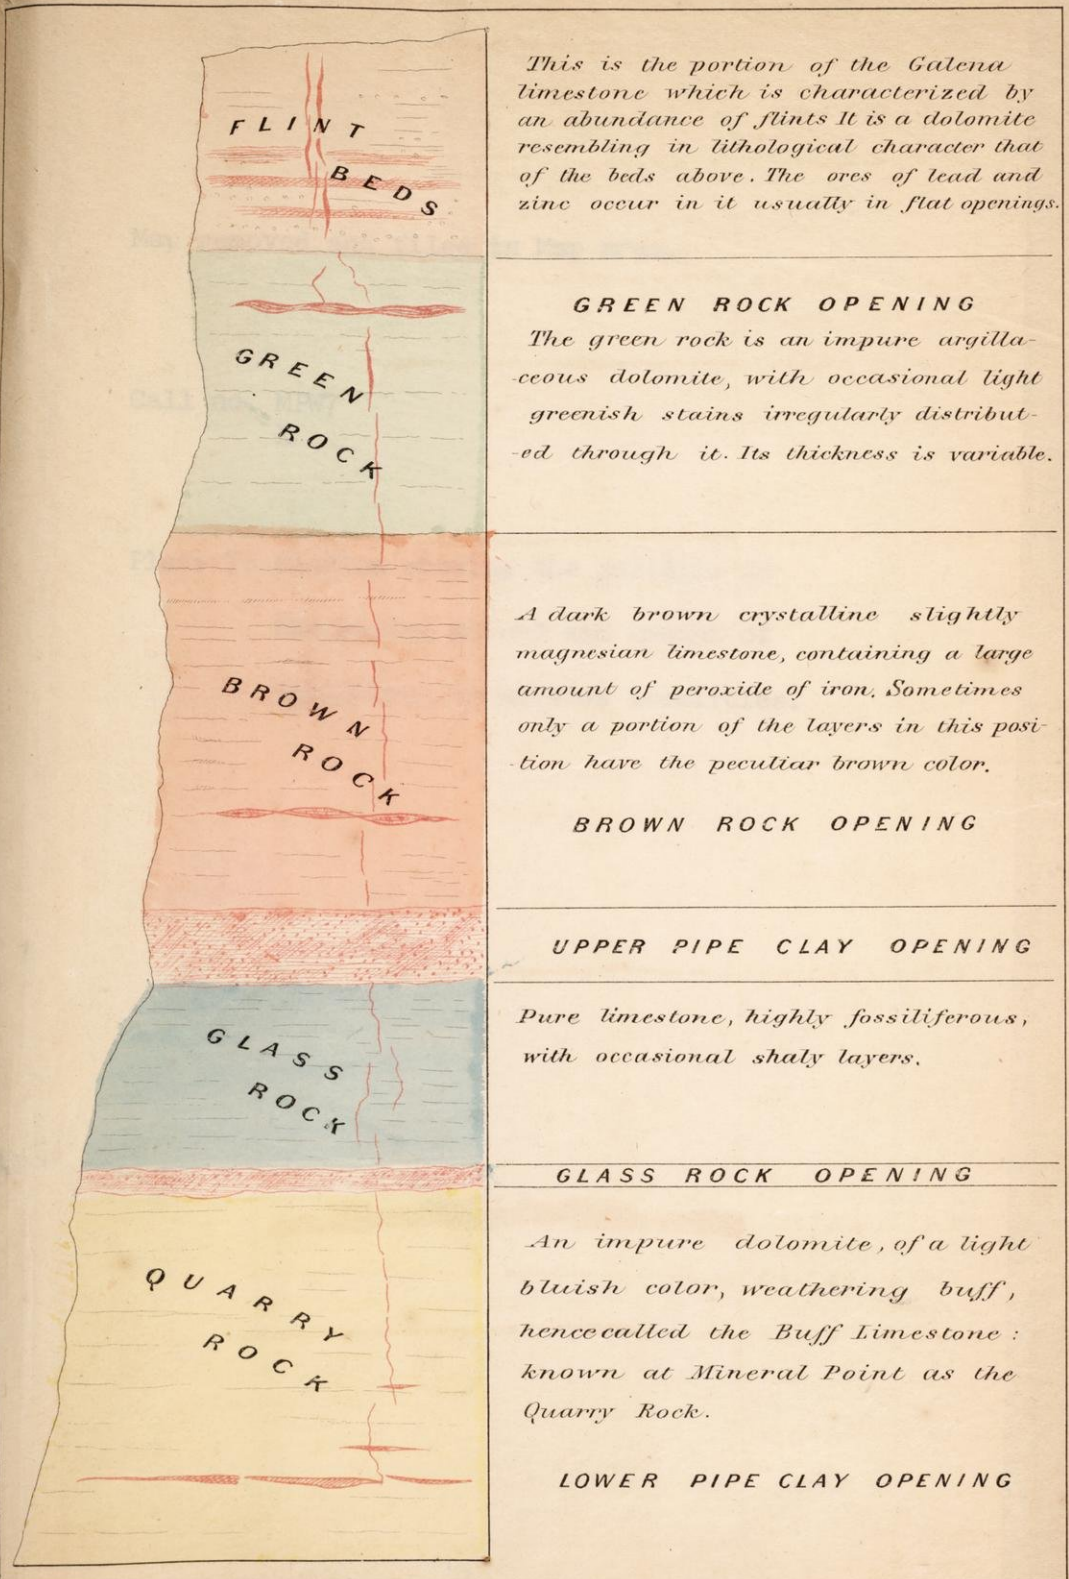 FLINT
BEDS
This is the portion of the Galena
limestone which is characterized by
an abundance of flints It is a dolomite
resembling in lithological character that
of the beds above. The ores of lead and
zinc occur in it usually in flat openings.
GREEN
ROCK
GREEN ROCK OPENING
The green rock is an impure argilla-
-ceous dolomite, with occasional light
greenish stains irregularly distribut-
-ed through it. Its thickness is variable.
BROWN
ROCK
A dark brown crystalline slightly
magnesian limestone, containing a large
amount of peroxide of iron. Sometimes
only a portion of the layers in this posi-
-tion have the peculiar brown color.
BROWN ROCK OPENING
UPPER PIPE CLAY OPENING
GLASS
ROCK
Pure limestone, highly fossiliferous,
with occasional shaly layers.
GLASS ROCK OPENING
QUARRY
ROCK
An impure dolomite, of a light
bluish color, weathering buff,
hence called the Buff Limestone :
known at Mineral Point as the
Quarry Rock.
LOWER PIPE CLAY OPENING